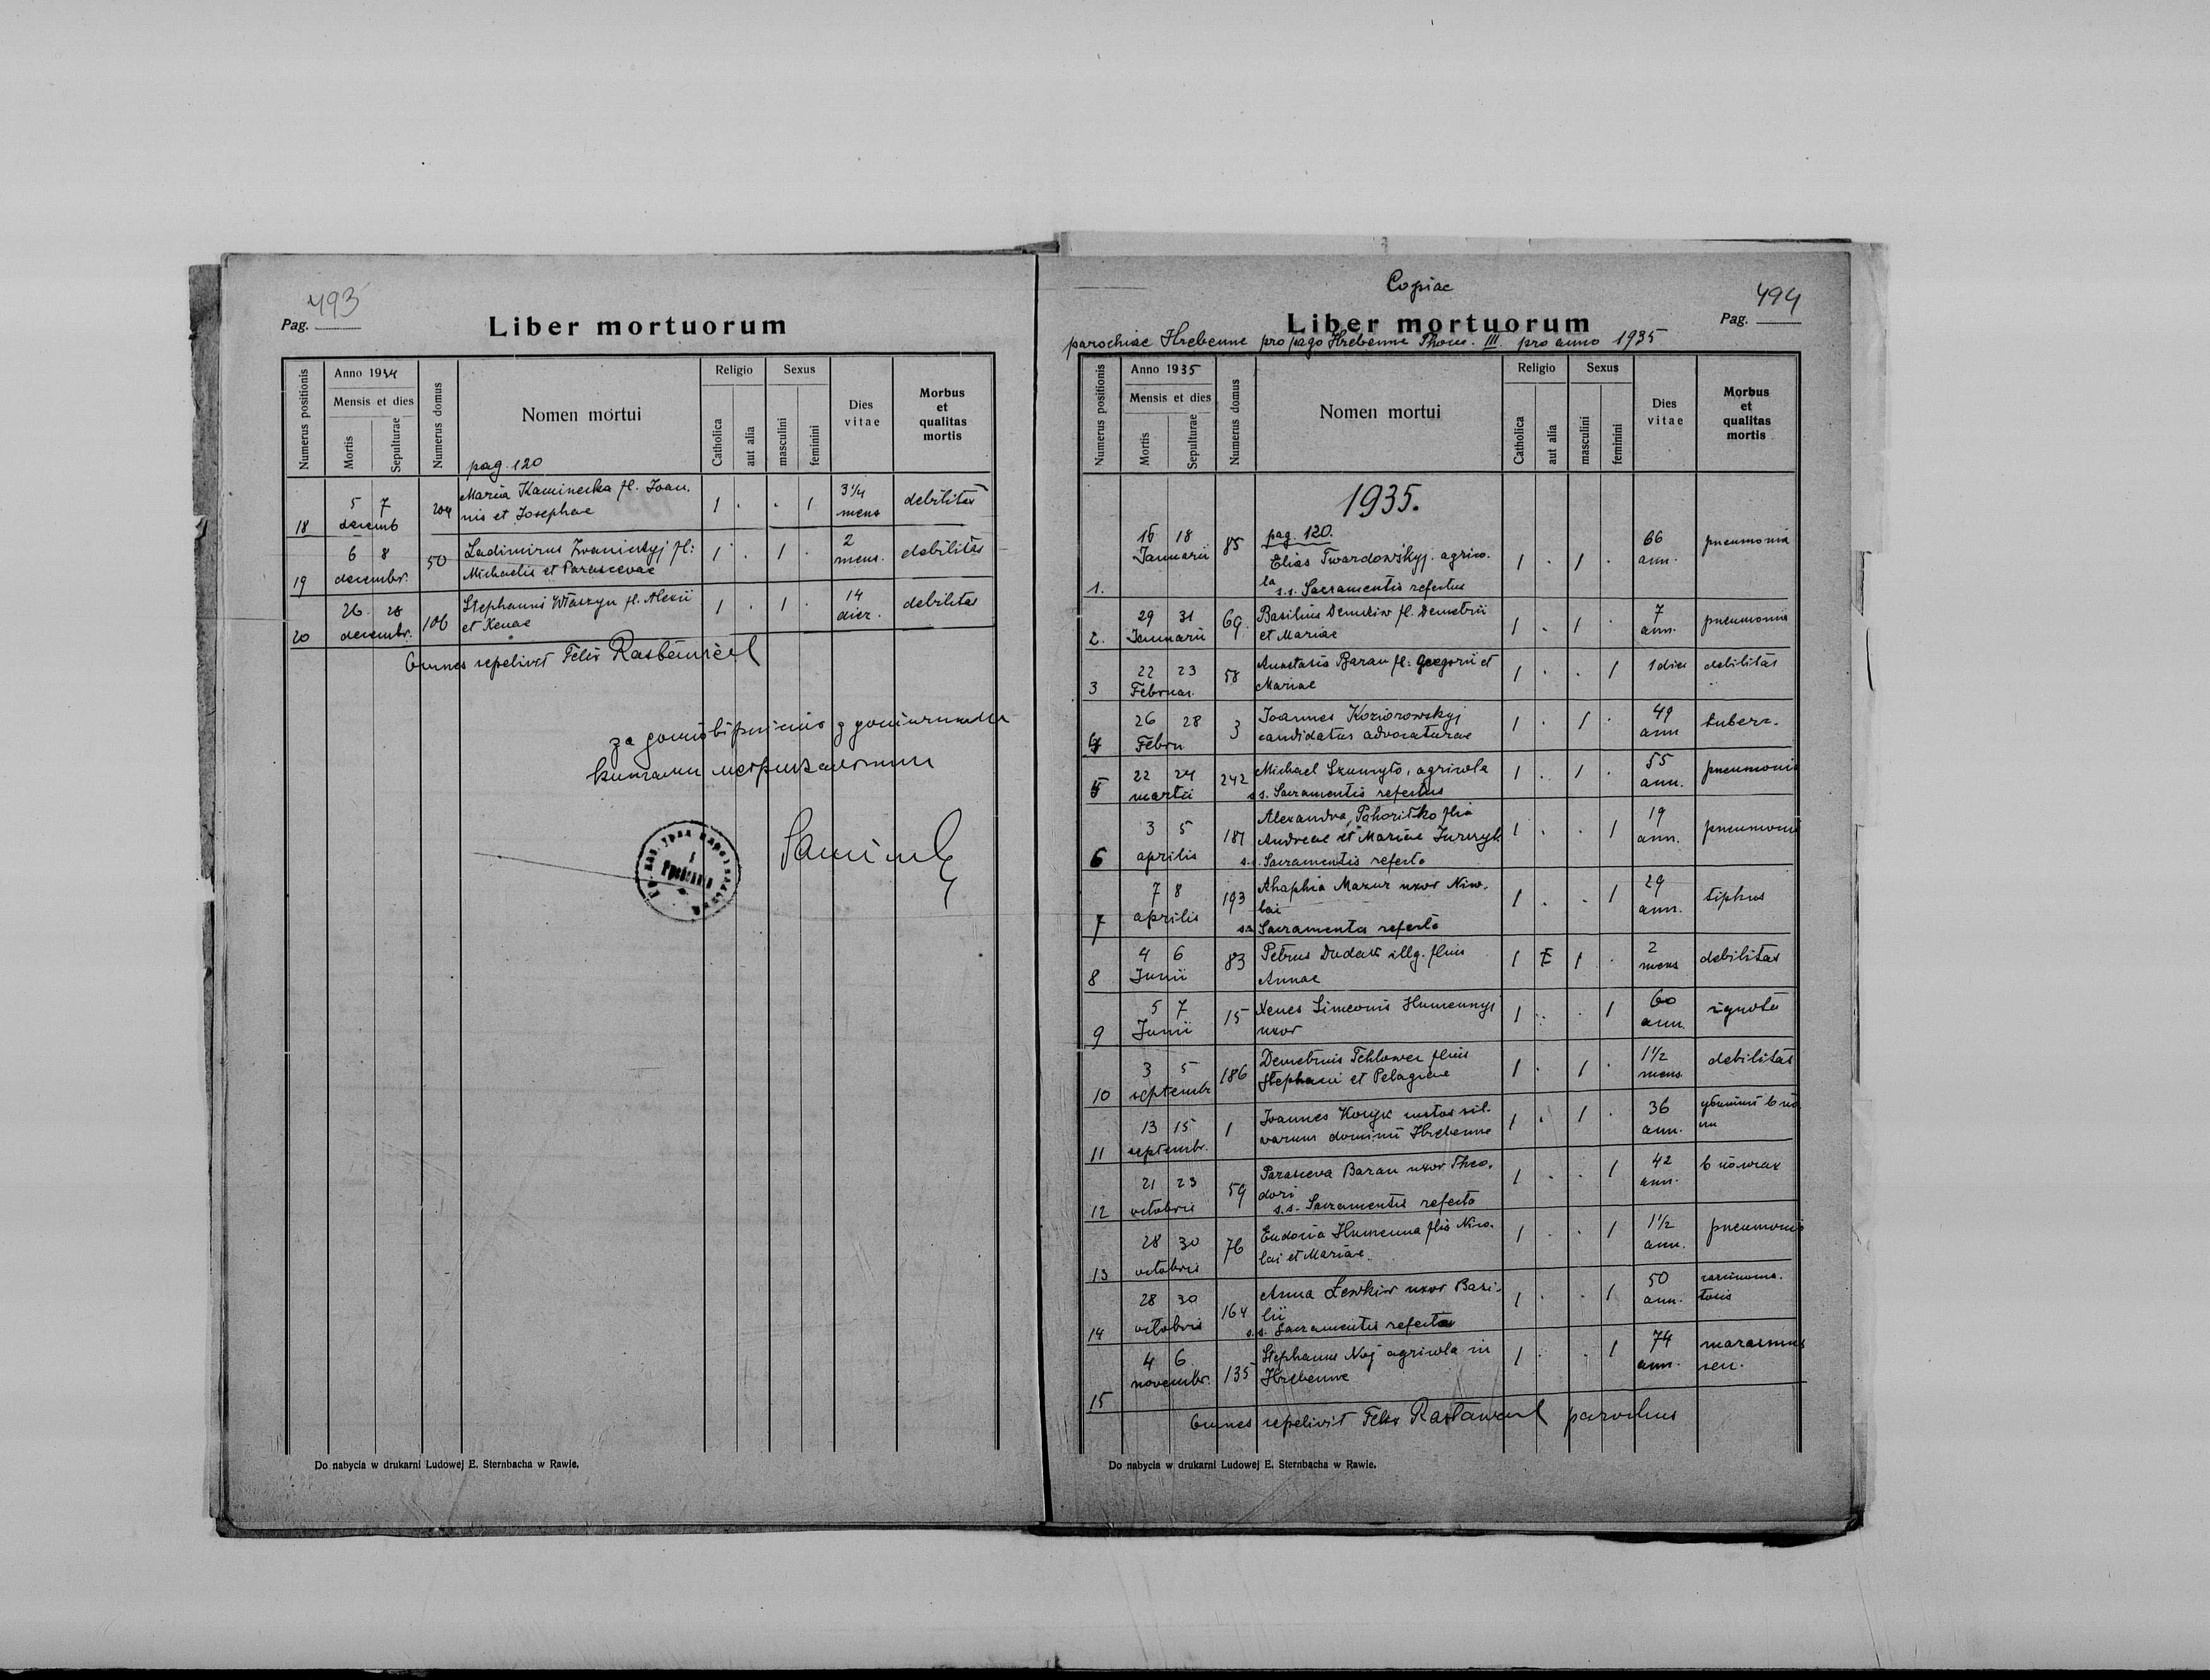 493
Pag.
Liber mortuorum
Numerus positionis
Anno 1934
Mensis et dies
Mortis
Sepulturae
Numerus domus
Nomen mortui
pag. 120
Religio
Catholica
aut alia
Sexus
masculini
feminini
Dies vitae
Morbus et qualitas mortis
18 5 7 decemb 204 Maria Kaminecka fl. Joan. 1 . . 1 3 1/4 mens debilitas
nis et Josephae
19 6 8 decembr. 50 Ladimirus Iwanickyj fl: 1 . 1 . 2 mens. debilitas
Michaelis et Parascevae
20 26 28 decembr. 106 Stephanus Właszyn fl. Alexii 1 . 1 . 14 dier. debilitas
et Xenae
Omnes sepelivit Felix Rastawiecki
за
книгами метрикальними
Do nabycia w drukarni Ludowej E. Sternbacha w Rawie.
Copiae
494
Pag.
Liber mortuorum
parochiae Hrebenne pro pago Hrebenne Thom. III. pro anno 1935
Numerus positionis
Anno 1935
Mensis et dies
Mortis
Sepulturae
Numerus domus
Nomen mortui
Religio
Catholica
aut alia
Sexus
masculini
feminini
Dies vitae
Morbus et qualitas mortis
1935.
pag. 120.
1. 16 18 Januarii 85 Elias Twardowśkyj. agrico- 1 . 1 . 66 ann. pneumonia
la
s.s. Sacramentis refectus
2. 29 31 Januarii 69. Basilius Demkiw fl. Demetrii 1 . 1 . 7 ann. pneumonia
et Mariae
3 22 23 Februar. 58 Anastasia Baran fl: Gregorii et 1 . . 1 1 dies debilitas
Mariae
4 26 28 Febru 3 Joannes Koziorowskyj 1 . 1 . 49 ann tuberc.
candidatus advocaturae
5 22 24 martii 242 Michael Szumyło, agricola 1 . 1 . 55 ann. pneumonia
s s. Sacramentis refectus
6 3 5 aprilis 187 Alexandra Pohoriłko filia 1 . . 1 19 ann. pneumonia
Andreae et Mariae
s.s. Sacramentis refecta
7 7 8 aprilis 193 Ahaphia Mazur uxor Nico- 1 . . 1 29 ann. tiphus
lai
s.s Sacramenta refecta
8 4 6 Junii 83 Petrus Dudak illg. filius 1 1 . 2 mens debilitas
Annae
9 5 7 Junii 15 Xenes Simeonis Humennyj 1 . . 1 60 ann. ignota
uxor
10 3 5 septembr 186 Demetrius Tchlower filius 1 . 1 . 1 1/2 mens. debilitas
Stephani et Pelagiae
11 13 15 septembr. 1 Joannes Kozyk custos sil- 1 . 1 . 36 ann.
varum dominii Hrebenne
12 21 23 octobris 59 Parasceva Baran uxor Theo- 1 . . 1 42 ann.
dori
s.s. Sacramentis refecta
13 28 30 octobris 76 Eudoxia Humenna filia Nico- 1 . . 1 1 1/2 ann. pneumonia
lai et Mariae.
14 28 30 octobris 164 Anna Lewkiw uxor Basi- 1 . . 1 50 ann. carcinoma-
lii tosis
s.s. Sacramentis refecta
15 4 6 novembr. 135 Stephanus Noj agricola in 1 . . 1 74 ann. marasmus
Hrebenne sen.
Omnes sepelivit Felix Rastawiecki parochus
Do nabycia w drukarni Ludowej E. Sternbacha w Rawie.